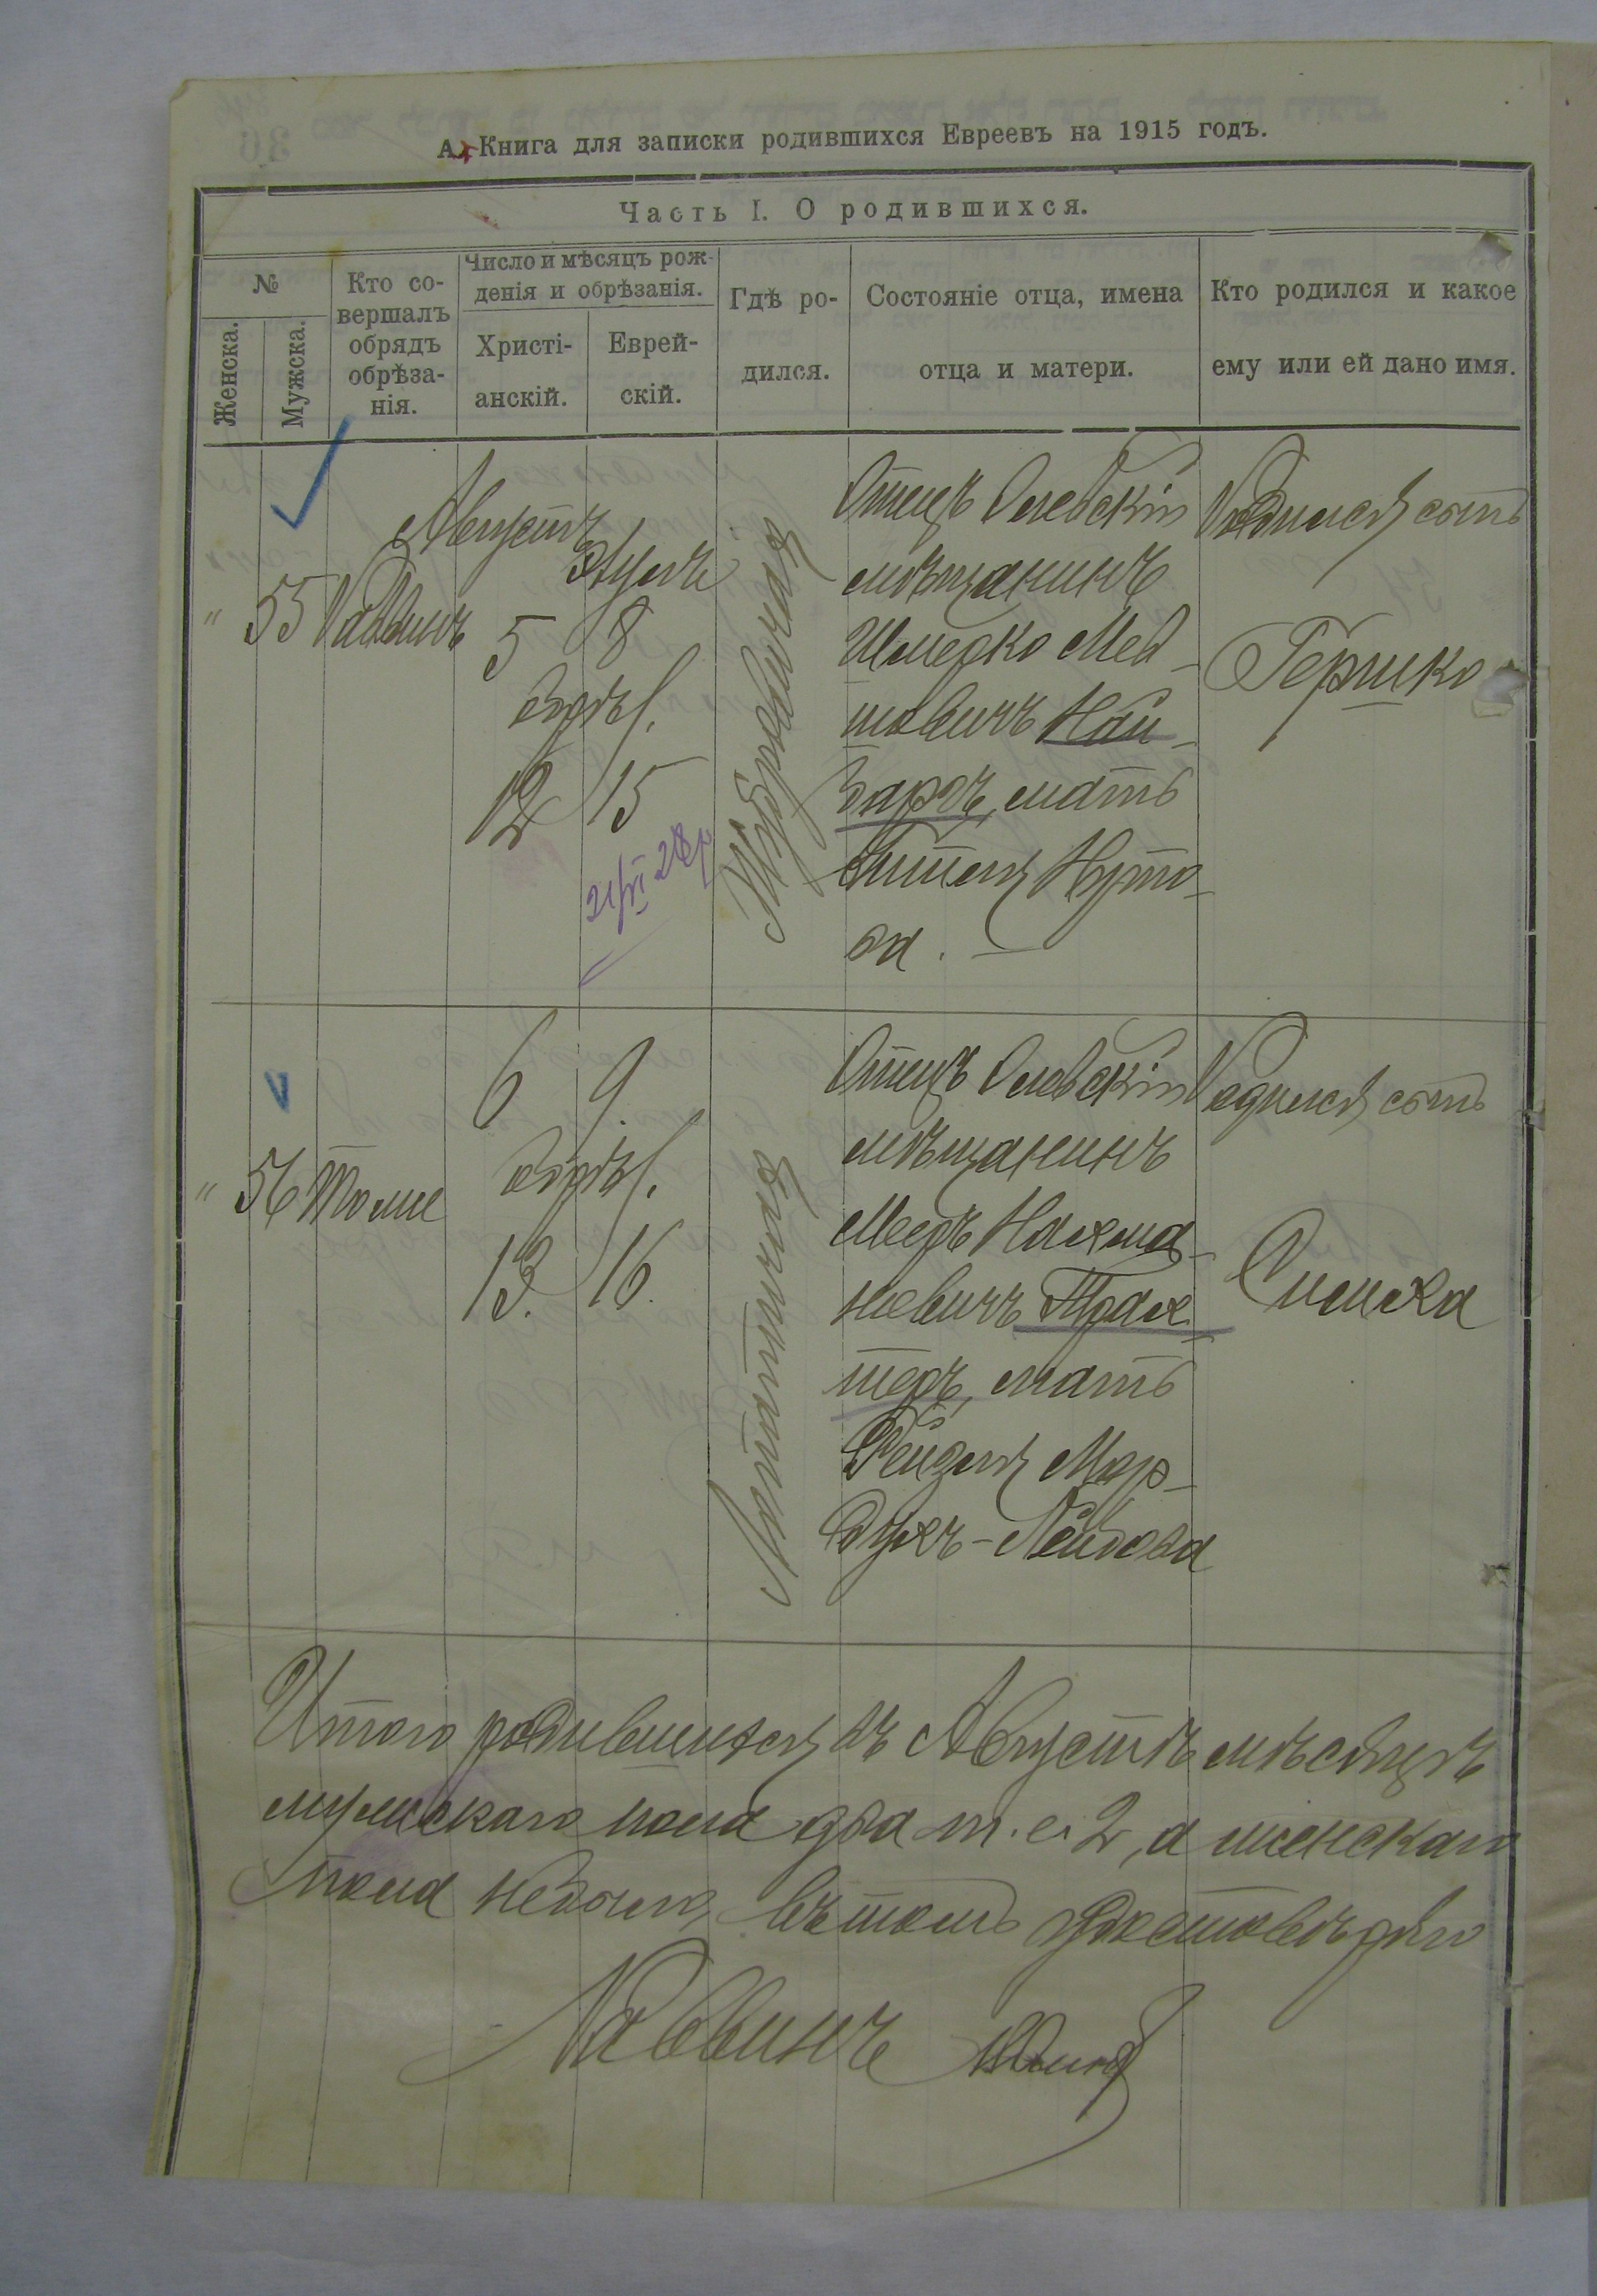 А. Книга для записки родившихся Евреевъ на 1915 годъ.
Часть I. О родившихся.
№
Женска.
Мужска.
Кто со-
вершалъ
обрядъ
обрѣза-
нія.
Число и мѣсяцъ рож-
денія и обрѣзанія.
Христі-
анскій.
Еврей-
скій.
Гдѣ ро-
дился.
Состояніе отца, имена
отца и матери.
Кто родился и какое
ему или ей дано имя.
" 55 Раввинъ
Августъ
5 8
обрѣз.
12 15
Отецъ Олевскій
мѣщанинъ
Шмерко Мев-
шовичъ Най-
барзъ, мать
Гитля Нуто-
ва.
Родился сынъ
Гершко
" 56 Томе
6 9.
обрѣз.
13. 16.
Отецъ Олевскій
мѣщанинъ
Мееръ Нахма-
новичъ Трах-
теръ, мать
Рейзля Мор-
духъ-Лейбова
Родился сынъ
Симха
Итого родившихся въ Августѣ мѣсяцѣ
мужскаго пола два т. е. 2, а женскаго
пола небыло, въ томъ удостовѣряю
Раввинъ